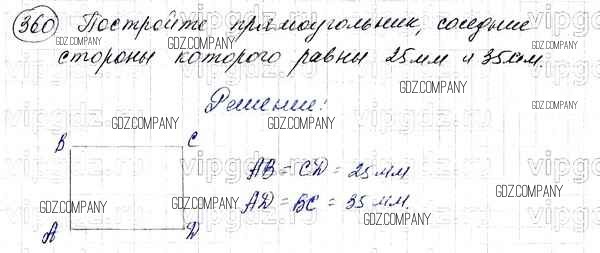 360 Постройте прямоугольник, соседние
стороны которого равны 25 мм и 35 мм.
Решение:
B C
AB = CD = 25 мм
AD = BC = 35 мм.
A D
GDZ.COMPANY
GDZ.COMPANY
GDZ.COMPANY
GDZ.COMPANY
GDZ.COMPANY
GDZ.COMPANY
GDZ.COMPANY
GDZ.COMPANY
GDZ.COMPANY
GDZ.COMPANY
GDZ.COMPANY
GDZ.COMPANY